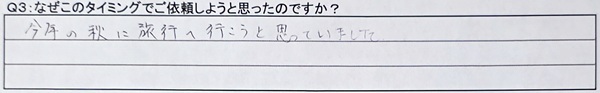 Q3:なぜこのタイミングでご依頼しようと思ったのですか？
今年の秋に旅行へ行こうと思っていまして